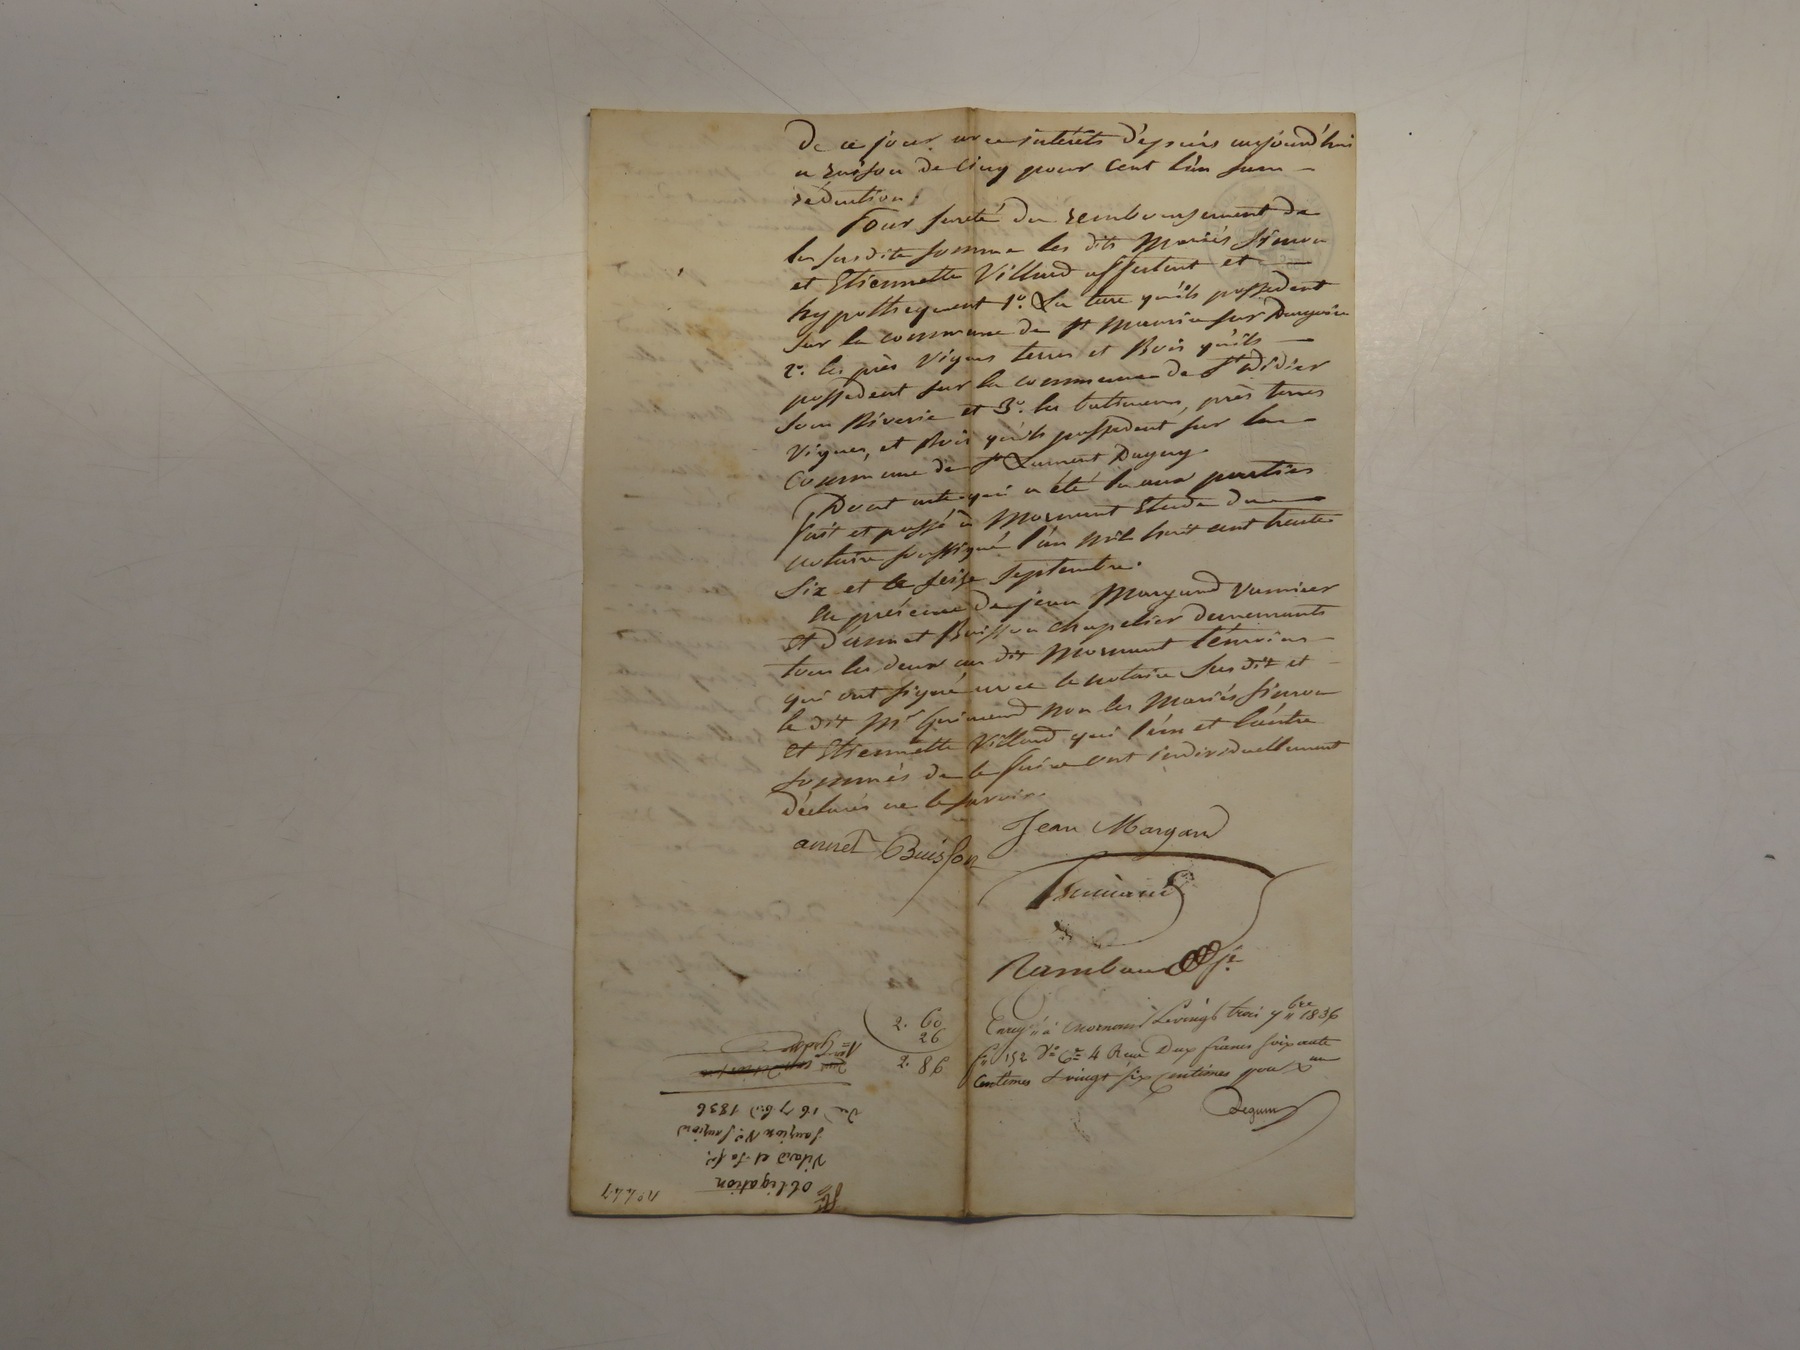 de ce jour avec intérêts dépuis aujourd'hui
a raison de cinq pour cent l'an sans
réduction.
Pour sureté du remboursement de
la susdite somme les dits Mariés Simon
et Etiennette Villard affectent et
hypothequent 1o. La terre qu'ils possedent
sur la commune de St Maurice sur Dargoire
2o. les près vignes terres et Bois qu'ils
possedent sur la commune de St Didier
sous Riverie et 3o. les batimens, près terres
vignes, et Bois qu'ils possedent sur la
commune de St Laurent Dagny.
Dont acte qui a été lu aux parties
fait et passé à Mornant Etude du
notaire soussigné l'an mil huit cent trente
six et le seize septembre.
En présence de jean Margand vannier
et d'annet Buisson chapelier demeurants
tous les deux au dit Mornant temoins
qui ont signé avec le notaire susdit et
le dit Mr non les Mariés Simon
et Etiennette Villard qui l'un et l'autre
sommés de le faire ont individuellement
déclarés ne le savoir.
Jean Margand
annet Buisson
Enregé à Mornant le vingt trois 7bre 1836
fo 152 Vo Ce 4 Reçu Deux francs soixante
centimes & vingt six centimes pour Xme
2. 60
26
2. 86
no 447
obligation
Du 16 7bre 1836